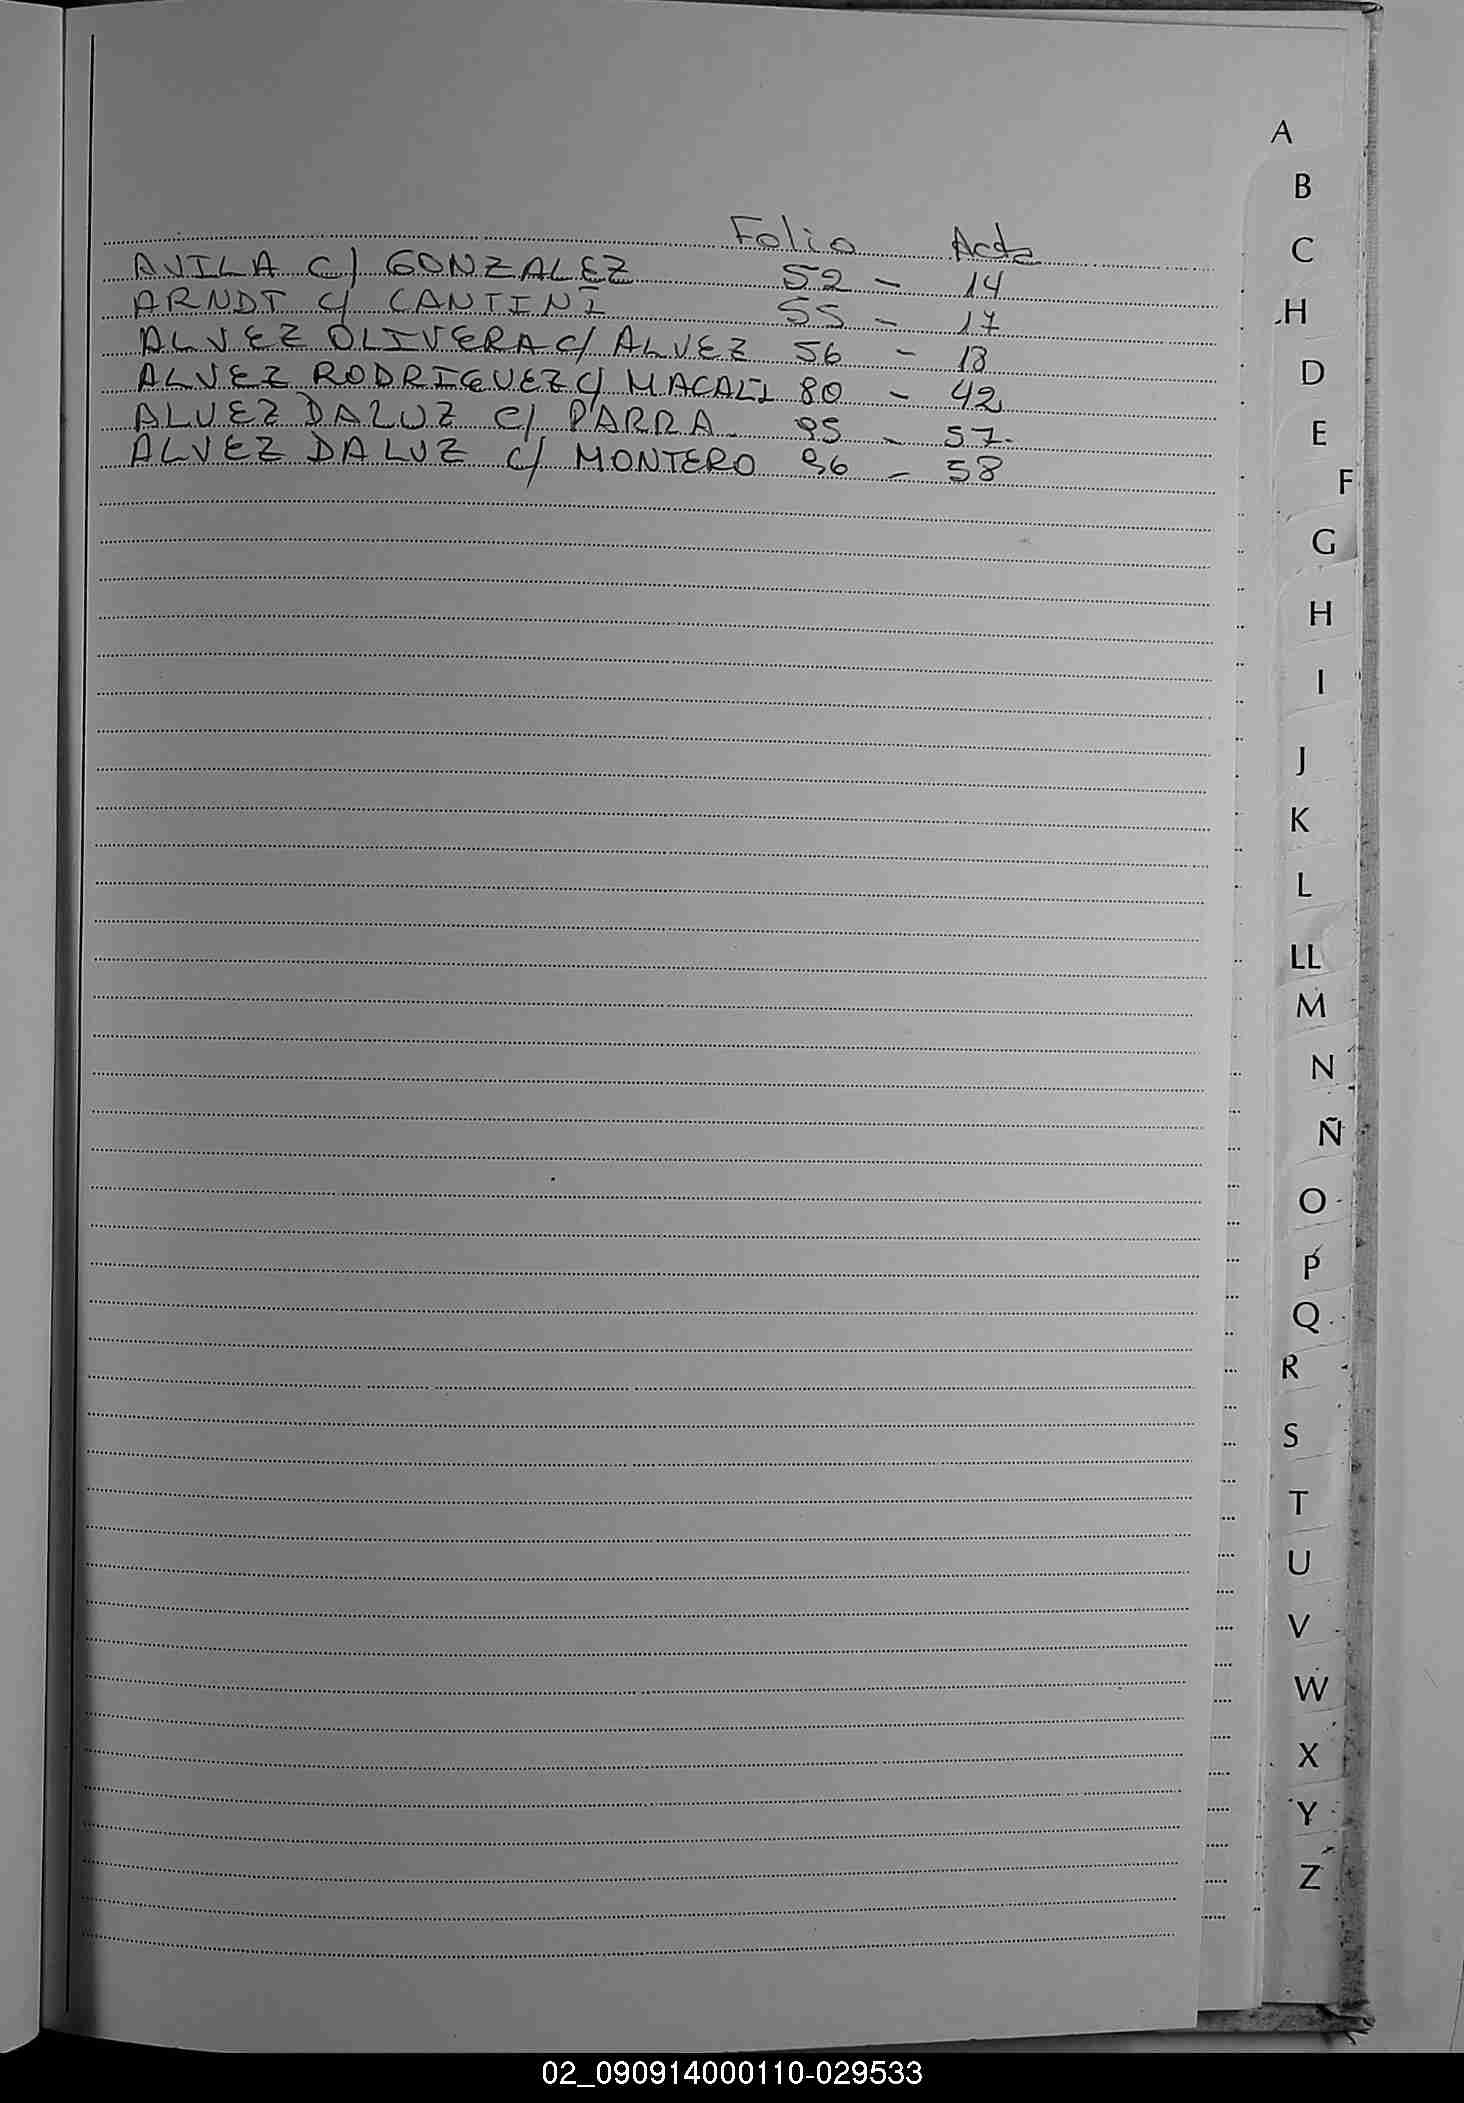 Folio Acta
AVILA C/ GONZALEZ 52 - 14
ARNDT C/ CANTINI 55 - 17
ALVEZ OLIVERA C/ ALVEZ 56 - 18
ALVEZ RODRIGUEZ C/ 80 - 42
ALVEZ DA LUZ C/ PARRA - 95 - 57.
ALVEZ DA LUZ C/ MONTERO 96 - 58
A
B
C
H
D
E
F
G
H
I
J
K
L
LL
M
N
Ñ
O
P
Q
R
S
T
U
V
W
X
Y
Z
02_090914000110-029533